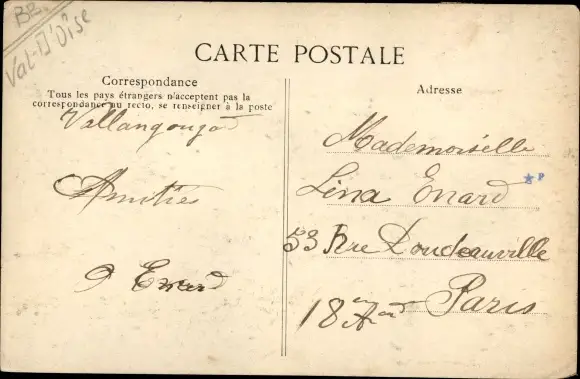 B2
Val-D'Oise
CARTE POSTALE
Correspondance
Tous les pays étrangers n'acceptent pas la
correspondance au recto, se renseigner à la poste
Vallangoujard
Amitiés
Enard
Adresse
Mademoiselle
Lina Enard
P
53 Rue Doudeauville
18 Arrd Paris